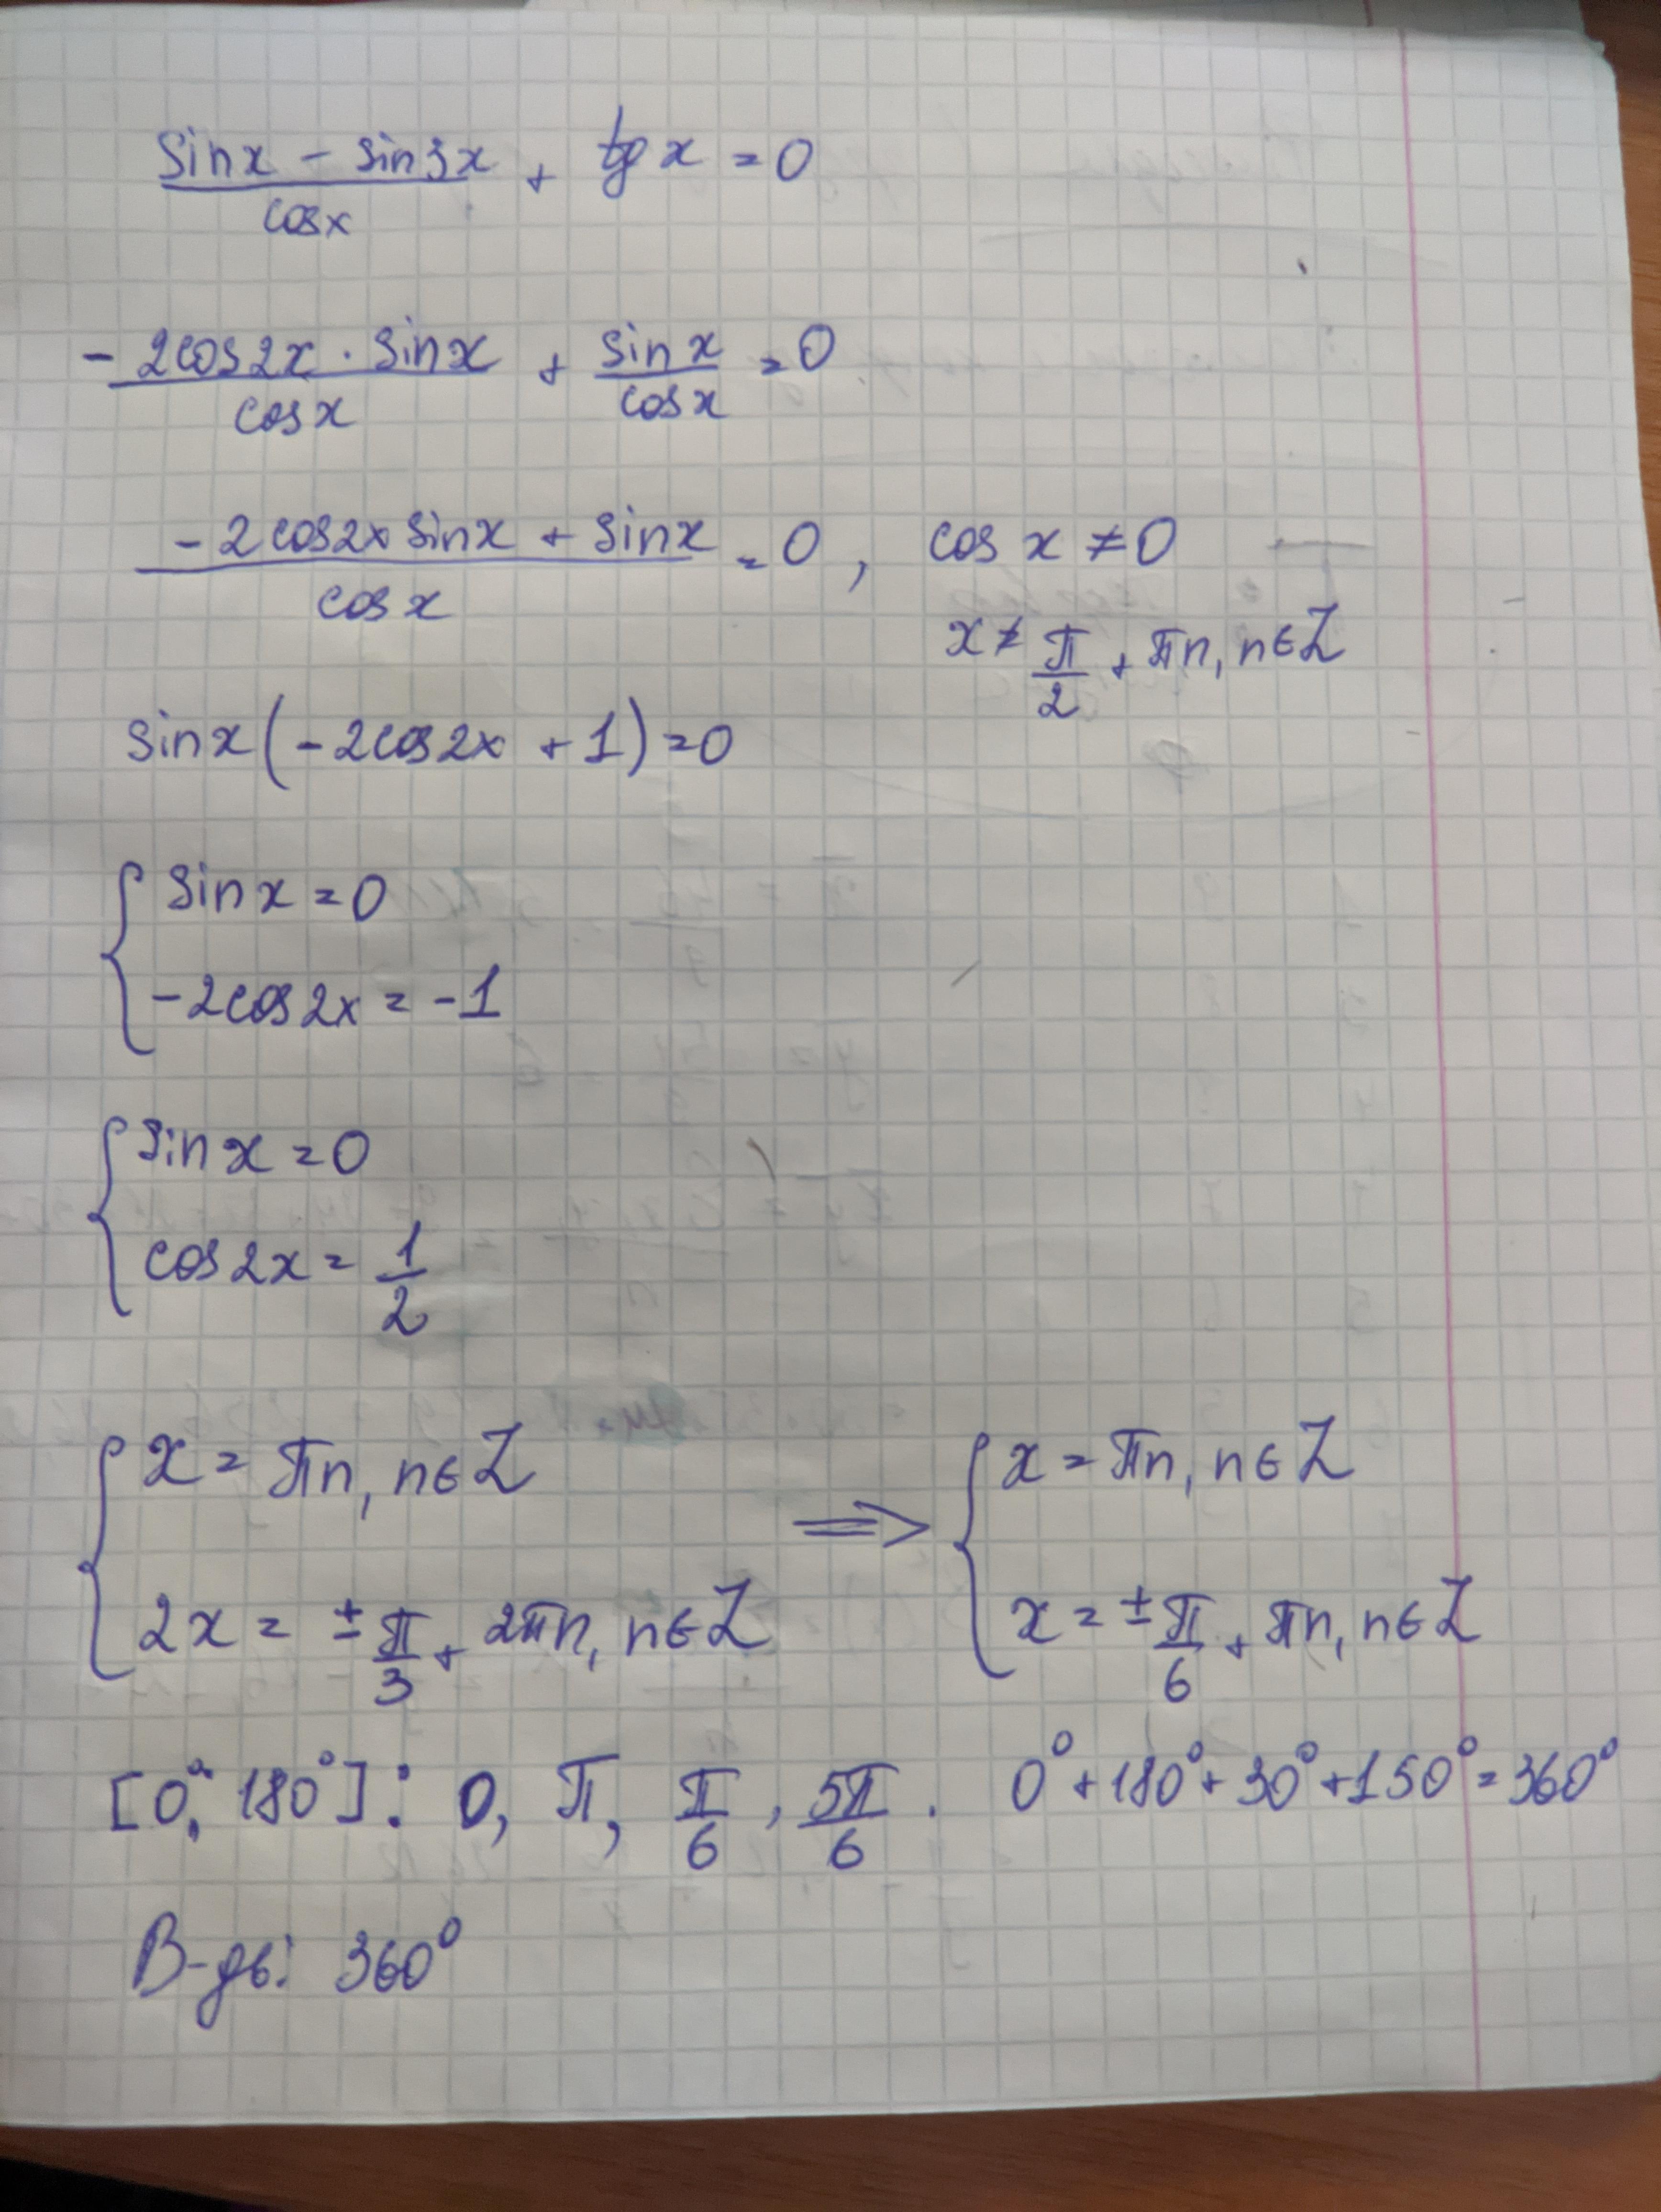 (sin x - sin 3x) / cos x + tg x = 0
- (2cos2x · sin x) / cos x + sin x / cos x = 0
(-2cos2x sin x + sin x) / cos x = 0, cos x ≠ 0
x ≠ π/2 + πn, n ∈ Z
sin x (-2cos2x + 1) = 0
{ sin x = 0
-2cos2x = -1
{ sin x = 0
cos2x = 1/2
{ x = πn, n ∈ Z
2x = ± π/3 + 2πn, n ∈ Z
⇒ { x = πn, n ∈ Z
x = ± π/6 + πn, n ∈ Z
[0°; 180°]: 0, π, π/6, 5π/6. 0° + 180° + 30° + 150° = 360°
В-дь: 360°